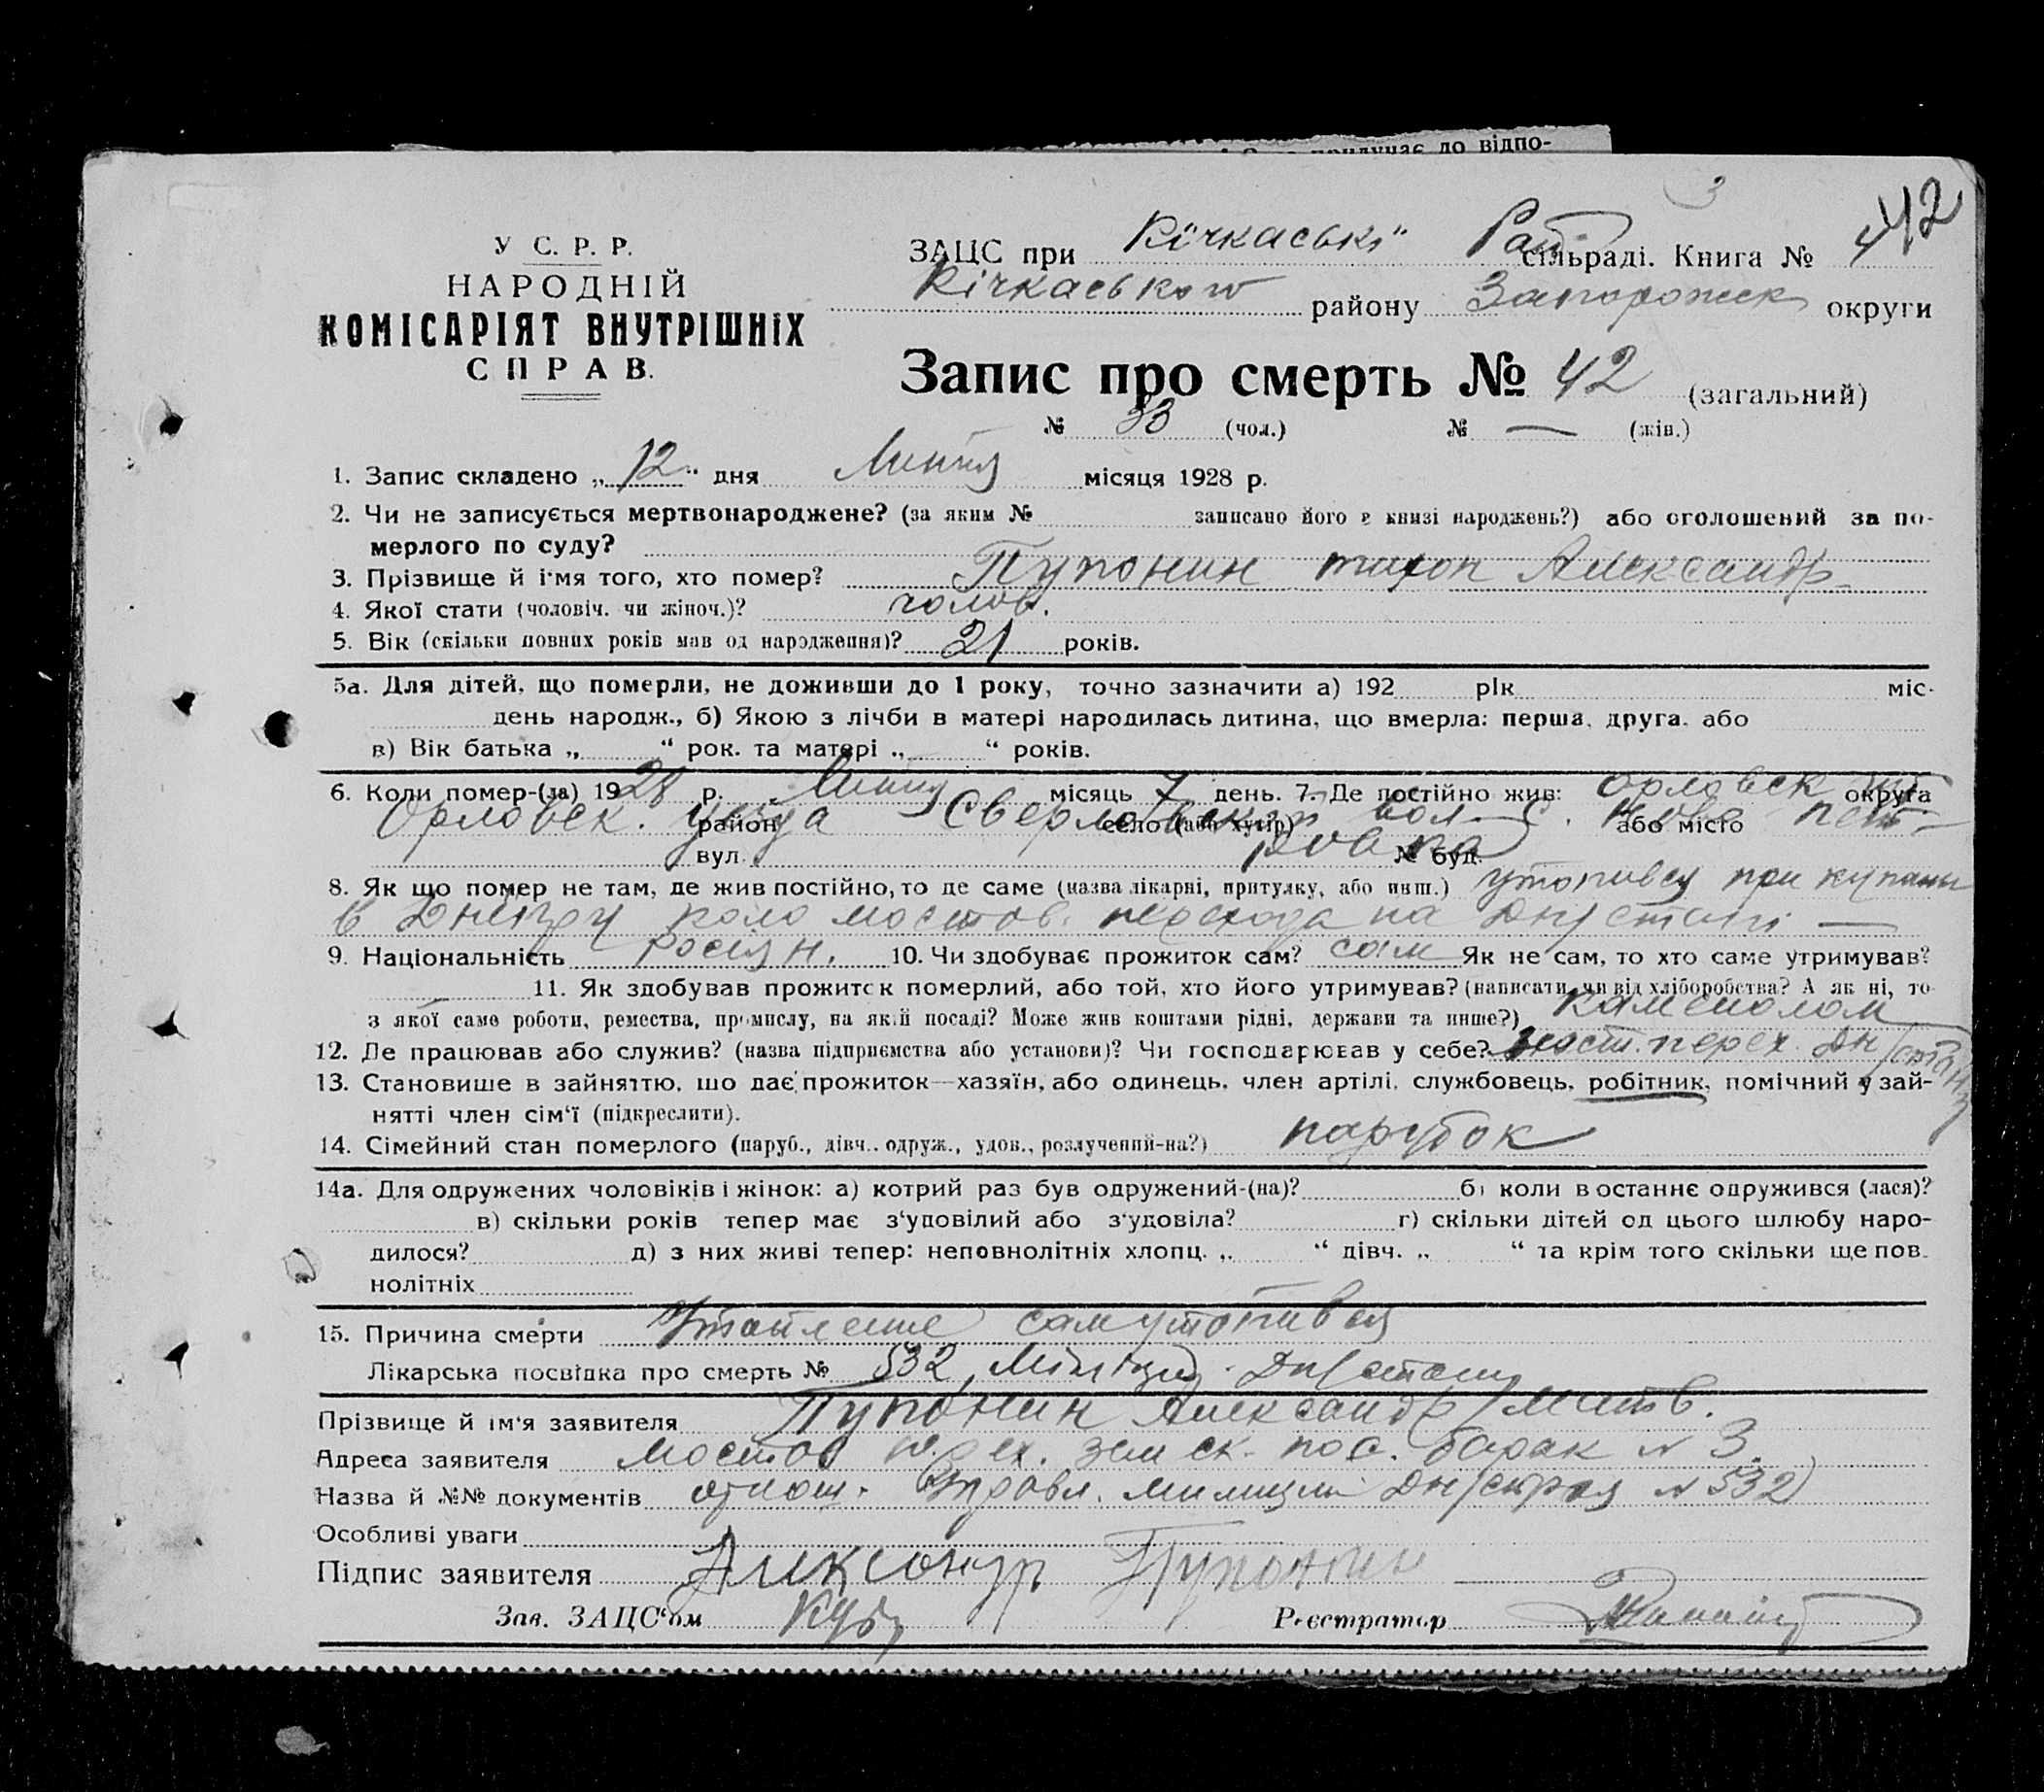 придучає до відпо-
3
У С. Р. Р.
НАРОДНІЙ
КОМІСАРІЯТ ВНУТРІШНІХ
СПРАВ.
442
ЗАЦС при Кічкаські Рай сільраді. Книга №
Кічкаського району Запорожск округи
Запис про смерть № 42 (загальний)
№ 33 (чол.) № — (жін.)
1. Запис складено „ 12 “ дня Липня місяця 1928 р.
2. Чи не записується мертвонароджене? (за яким № записано його в книзі народжень?) або оголошений за по-
мерлого по суду?
3. Прізвище й ім'я того, хто помер? Пупонин Александр
4. Якої стати (чоловіч. чи жіноч.)? чолов.
5. Вік (скільки повних років мав од народження)? 21 років.
5а. Для дітей, що померли, не доживши до 1 року, точно зазначити а) 192 рік міс.
день народж., б) Якою з лічби в матері народилась дитина, що вмерла: перша, друга, або
в) Вік батька „ “ рок. та матері „ “ років.
6. Коли помер-(за) 1928 р. Липня місяць 7 день. 7. Де постійно жив: Орловск округа
Орловск. уезда район Свердловской вол. село (або хутір) с. або місто
вул. № буд.
8. Як що помер не там, де жив постійно, то де саме (назва лікарні, притулку, або инш.) утопився при купаньі
в Дніпру коло мостов. перехода на Дн/стані —
9. Національність росіян. 10. Чи здобуває прожиток сам? сам Як не сам, то хто саме утримував?
11. Як здобував прожиток померлий, або той, хто його утримував? (написати, чи від хліборобства? А як ні, то
з якої саме роботи, ремества, промислу, на якій посаді? Може жив коштами рідні, держави та инше?) каменолом
12. Де працював або служив? (назва підприємства або установи)? Чи господарював у себе? мост. перех. Дн/стану
13. Становище в зайняттю, що дає прожиток—хазяїн, або одинець, член артілі, службовець, робітник, помічний у зай-
нятті член сім‘ї (підкреслити).
14. Сімейний стан померлого (паруб., дівч., одруж., удов., розлучений-на?) парубок
14а. Для одружених чоловіків і жінок: а) котрий раз був одружений-(на)? б) коли в останнє одружився (лася)?
в) скільки років тепер має з‘удовілий або з‘удовіла? г) скільки дітей од цього шлюбу наро-
дилося? д) з них живі тепер: неповнолітніх хлопц. „ “ дівч. „ “ та крім того скільки ще пов-
нолітніх
15. Причина смерти Утопление сам утопився
Лікарська посвідка про смерть № 532, Міліції Дн/стану
Прізвище й ім'я заявителя Пупонин Александр
Адреса заявителя мостов. перех. земск. пос. барак № 3
Назва й №№ документів отнош. Управл. милиции Дн/строя № 532
Особливі уваги
Підпис заявителя Александр Пупонин
Зав. ЗАЦС‘ом
Реєстратор